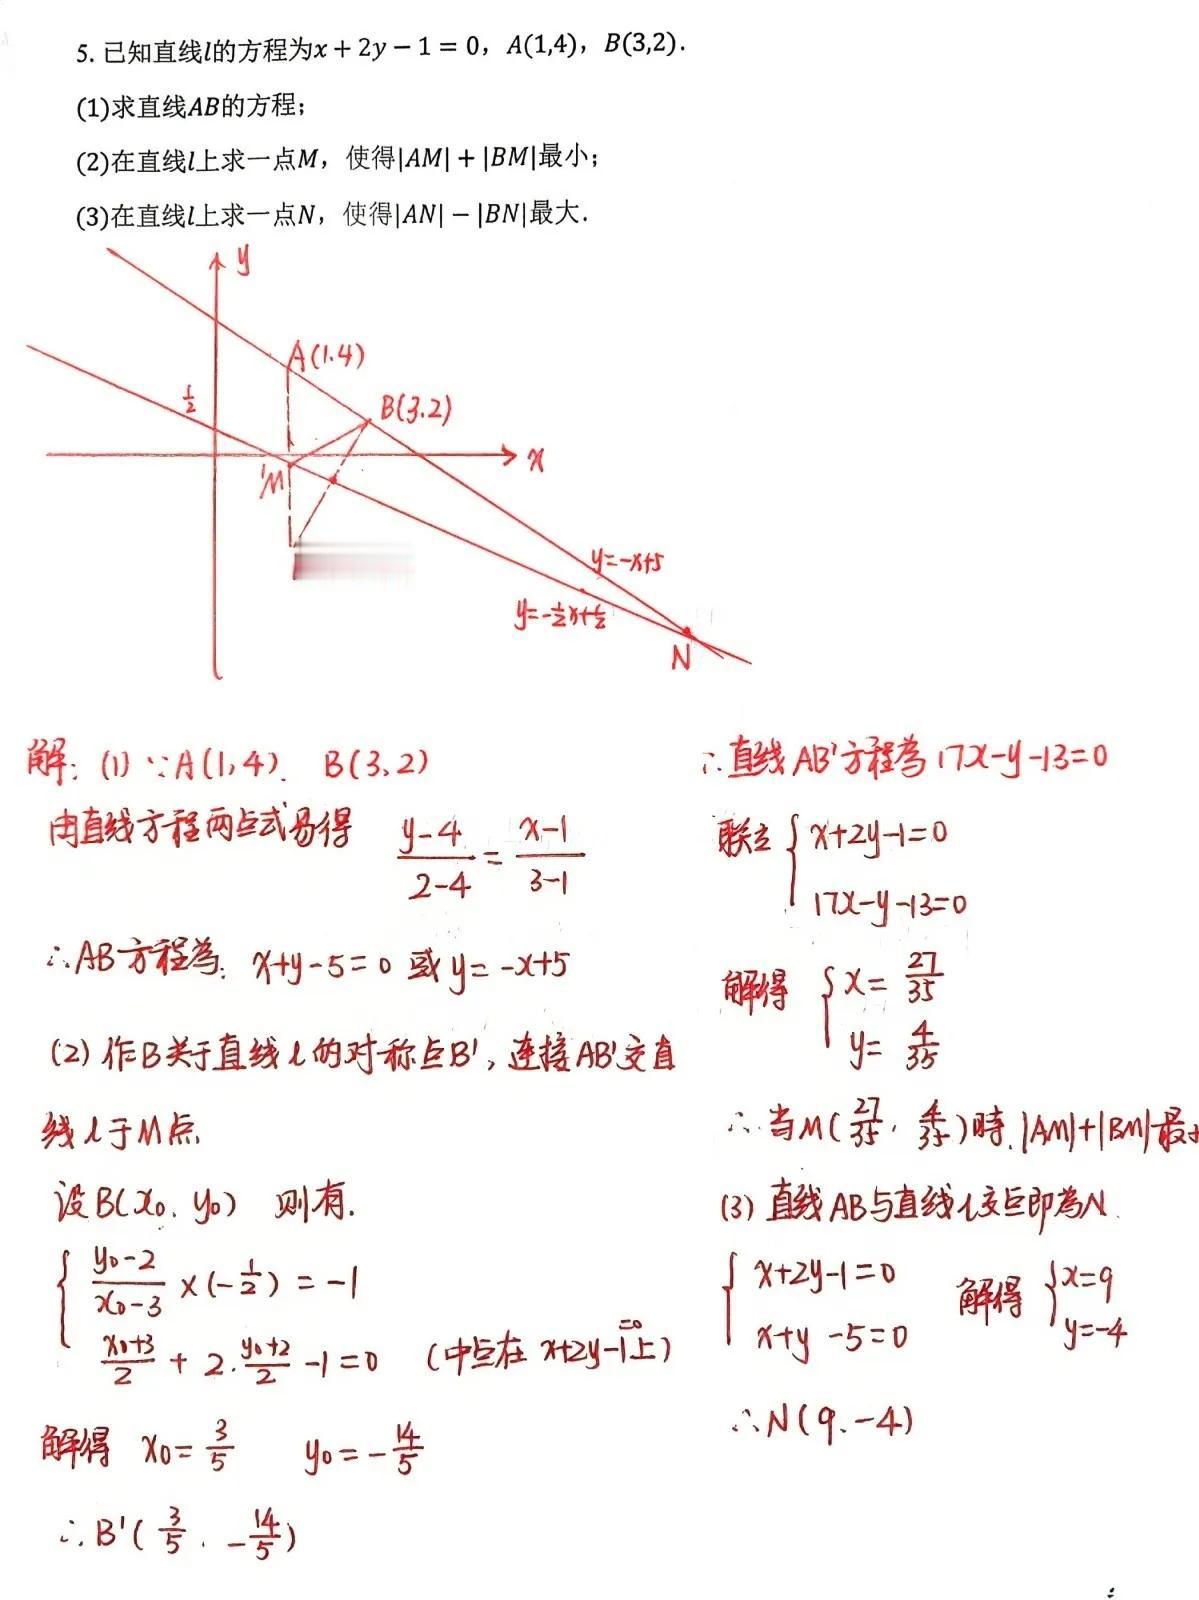 5. 已知直线l的方程为x + 2y − 1 = 0，A(1,4)，B(3,2).
(1)求直线AB的方程；
(2)在直线l上求一点M，使得|AM| + |BM|最小；
(3)在直线l上求一点N，使得|AN| − |BN|最大.
y
A(1.4)
1/2
B(3.2)
x
M
y=-x+5
y=-1/2x+1/2
N
解：(1) ∵A(1,4). B(3,2)
由直线方程两点式易得 (y-4)/(2-4) = (x-1)/(3-1)
∴AB方程為: x+y-5=0 或 y=-x+5
(2) 作B关于直线l的对称点B'，连接AB'交直
线l于M点.
设B(x₀, y₀) 则有.
{ (y₀-2)/(x₀-3) × (-1/2) = -1
(x₀+3)/2 + 2·(y₀+2)/2 -1=0 (中点在 x+2y-1=0上)
解得 x₀=3/5 y₀=-14/5
∴B'(3/5, -14/5)
∴直线AB'方程為 17x-y-13=0
联立 { x+2y-1=0
17x-y-13=0
解得 { x=27/35
y=4/35
∴当M(27/35, 4/35)時.|AM|+|BM|最小
(3) 直线AB与直线l交点即為N.
{ x+2y-1=0 解得 { x=9
x+y-5=0 y=-4
∴N(9.-4)